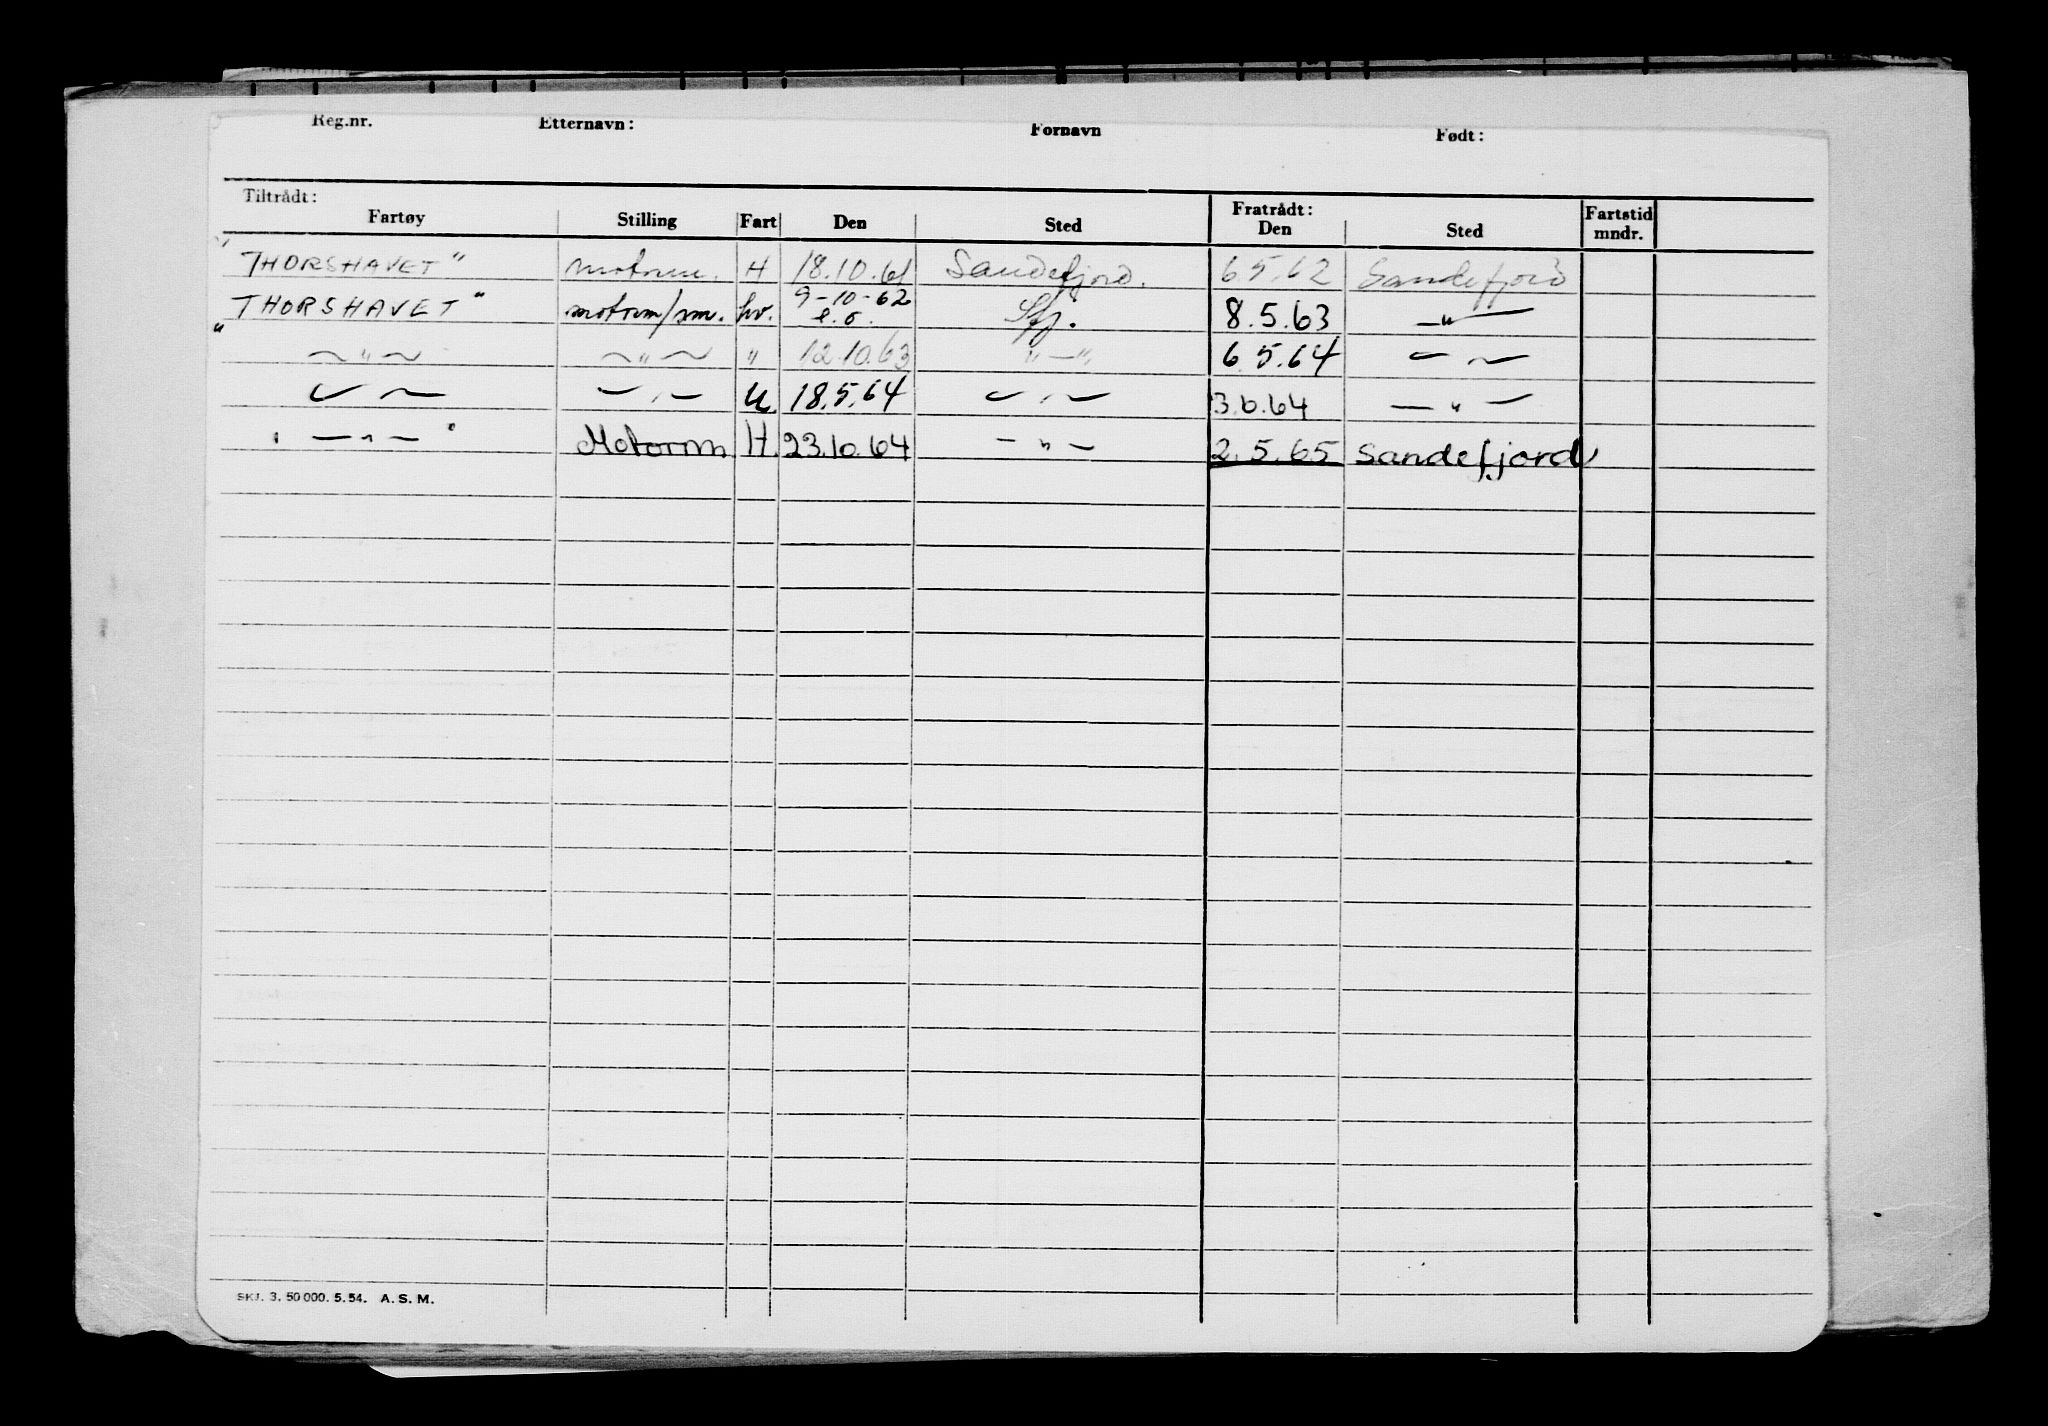 Reg.nr. Etternavn: Fornavn Født:
Tiltrådt: Fratrådt:
Fartøy Stilling Fart Den Sted Den Sted Fartstid mndr.
"THORSHAVET" motorm. H 18.10.61 Sandefjord. 6 5.62 Sandefjord
"THORSHAVET" motorm/sm. hv. 9-10-62 e.o. Sfj. 8.5.63 — " —
~ " ~ ~ " ~ " 12.10.63 " — " 6 5.64 ~ ~
~ ~ — , — U. 18.5.64 ~ , ~ 3.6.64 — " —
" — " — " Motorm H. 23.10.64 — " — 2.5.65 Sandefjord
SKJ. 3. 50 000. 5. 54. A. S. M.